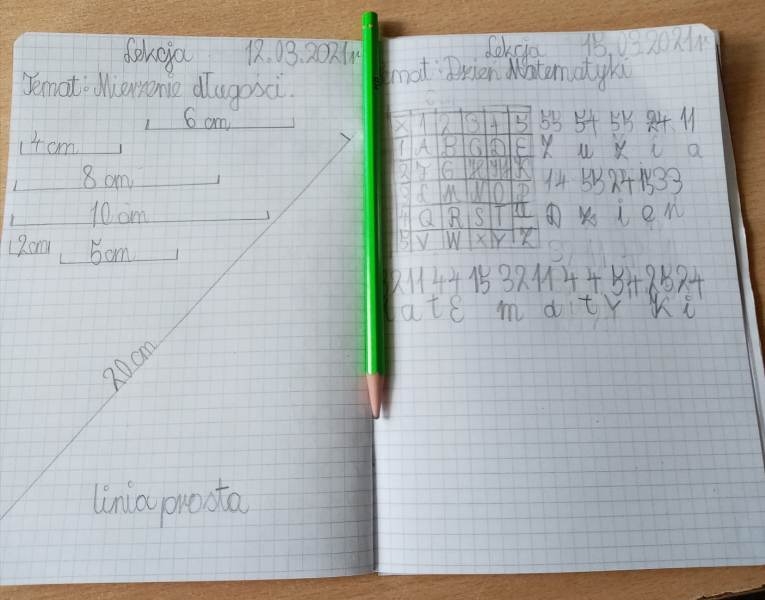 Lekcja 12.03.2021r
Temat: Mierzenie długości.
6 cm
4 cm
8 cm
10 cm
2cm 5cm
20 cm
linia prosta
Lekcja 15.03.2021r
emat: Dzień Matematyki
X 1 2 3 4 5
1 A B C D E
2 F G H I J K
3 L M N O P
4 Q R S T U
5 V W X Y Z
55 54 55 24 11
Z u z i a
14 55 24 15 33
D z i e ń
2 11 44 15 32 11 44 54 25 24
a t E m a t Y K i